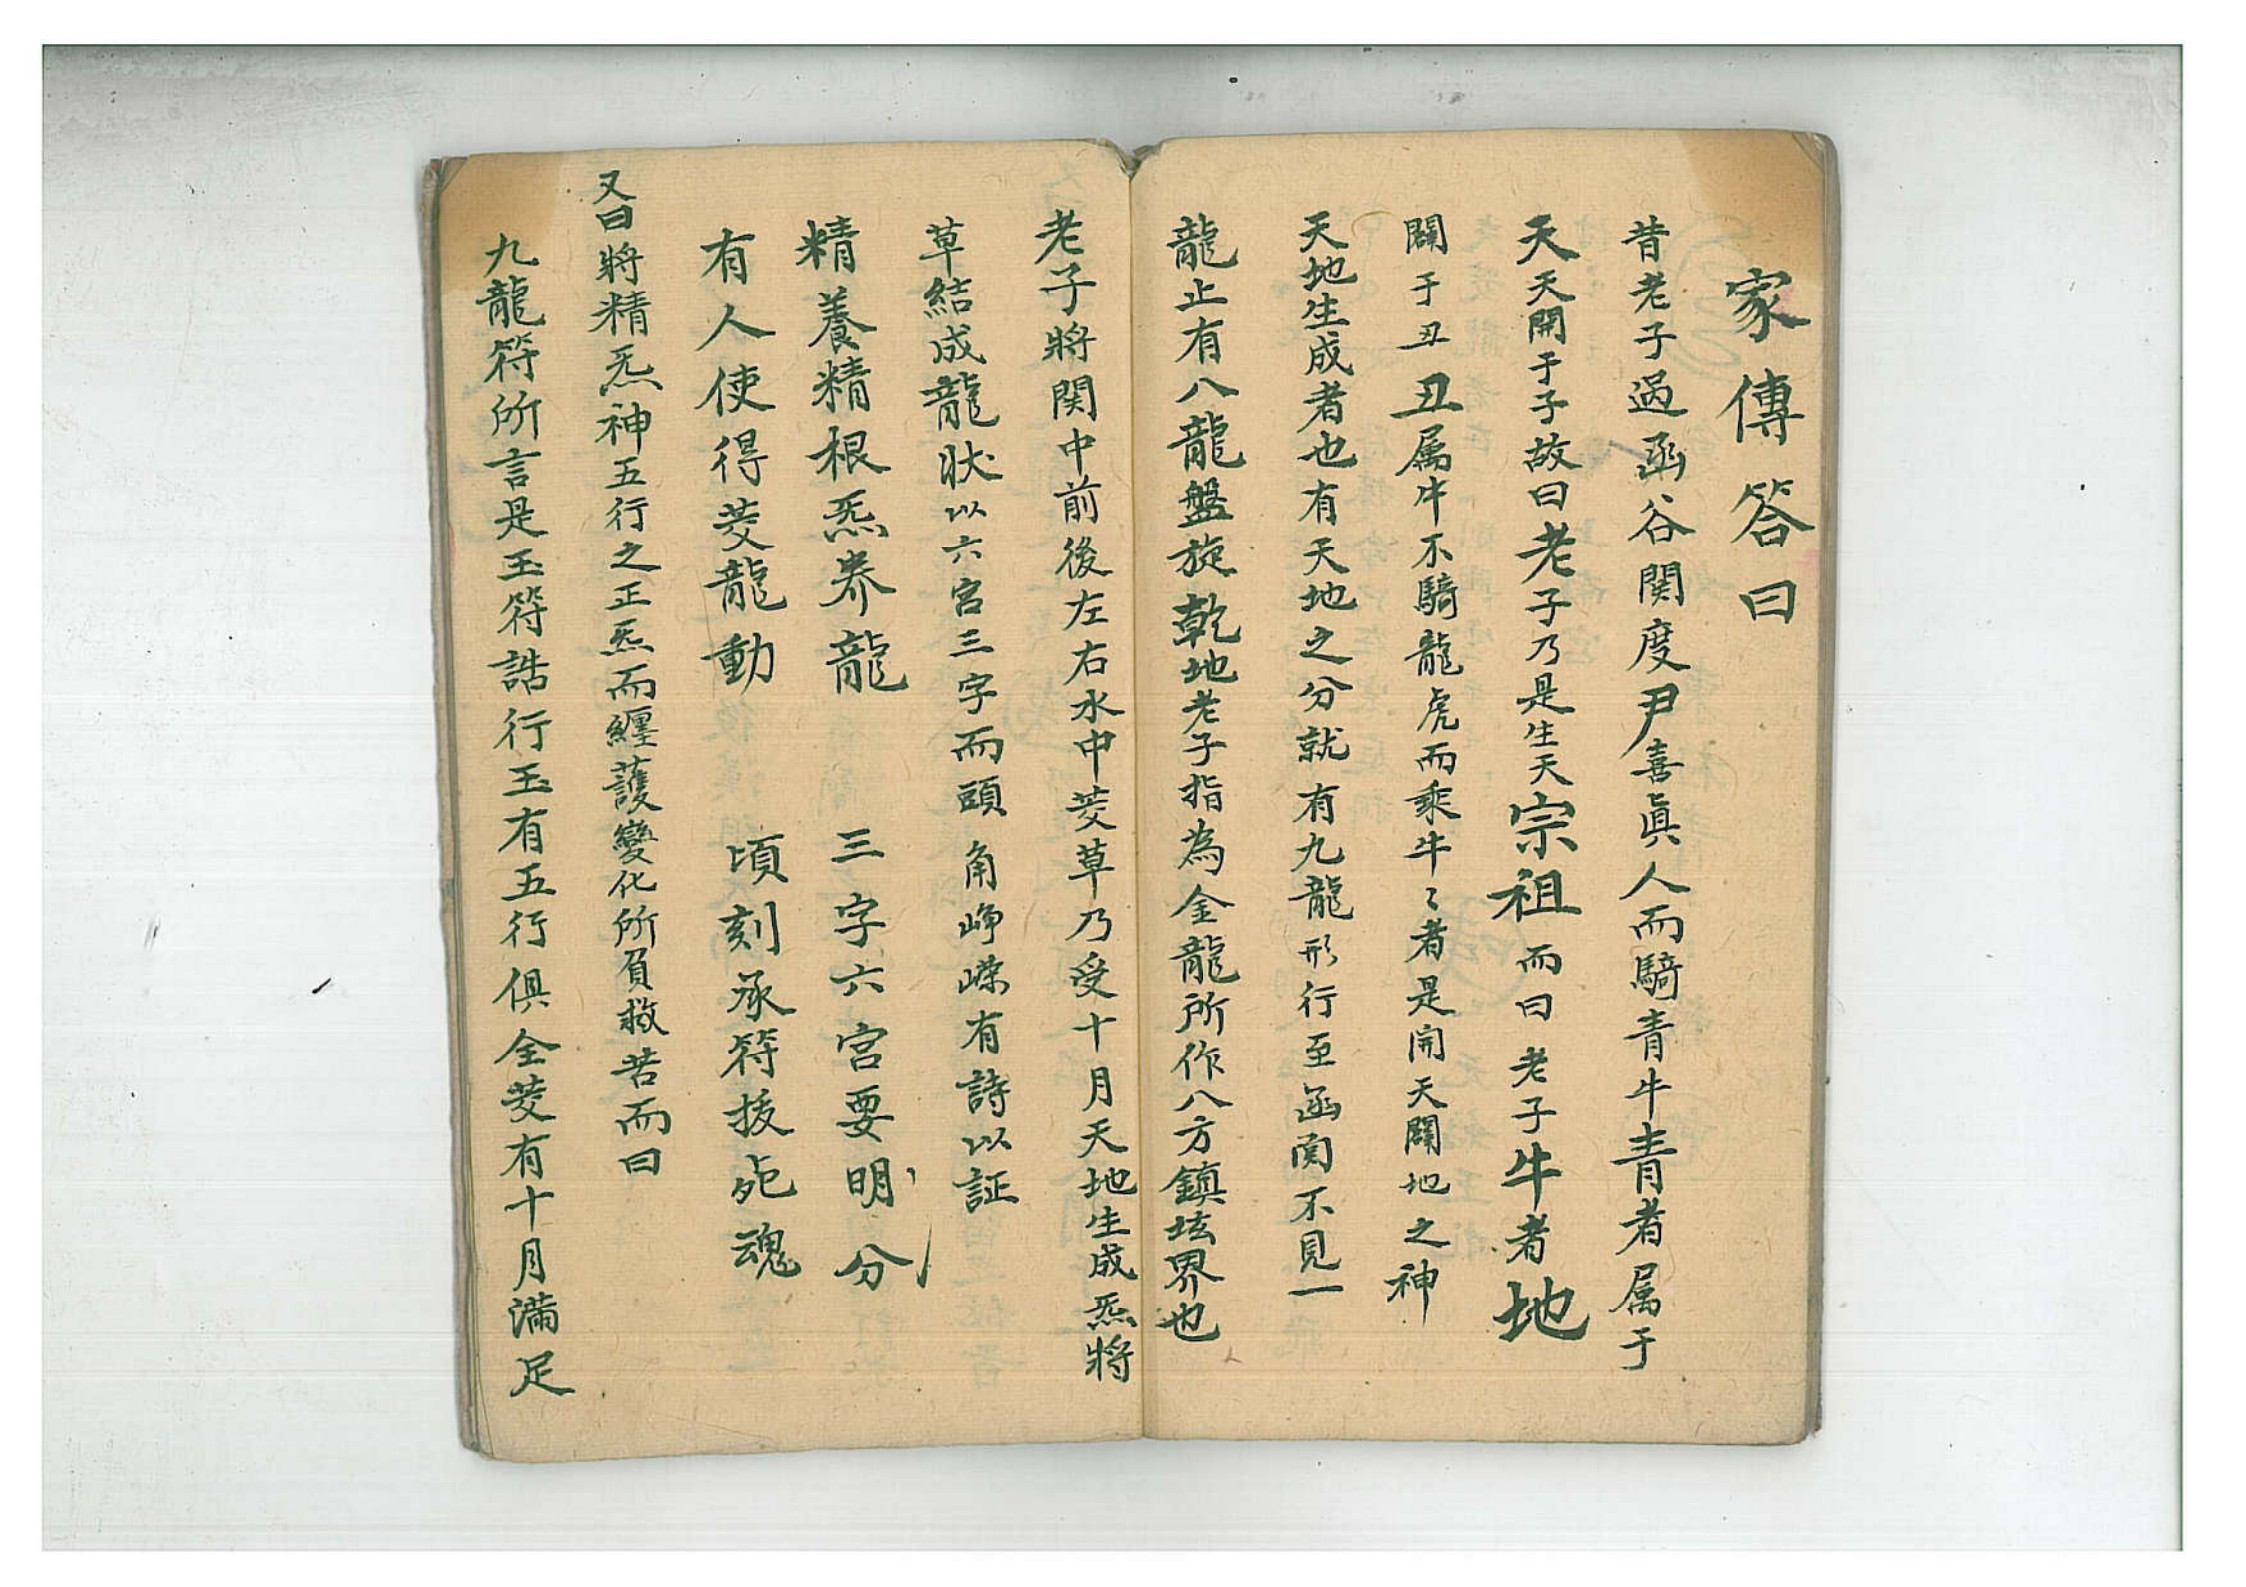 家傳答曰
昔老子過函谷関度尹喜眞人而騎青牛青者属于
天天開于子故曰老子乃是生天宗祖而曰老子牛者地
闢于丑丑属牛不騎龍虎而乘牛〻者是開天闢地之神
天地生成者也有天地之分就有九龍形行至函関不見一
龍止有八龍盤旋乾地老子指為金龍所作八方鎮垓界也
老子將関中前後左右水中菱草乃受十月天地生成炁將
草結成龍狀以六宮三字而頭角崢嶸有詩以証
精養精根炁养龍 三字六宮要明分
有人使得菱龍動 頃刻承符拔死魂
又曰將精炁神五行之正炁而纏護變化所負救苦而曰
九龍符所言是玉符誥行玉有五行俱全菱有十月滿足